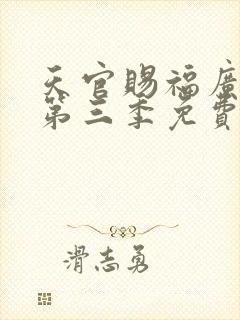 天官賜福廣
第三季免費
滑志勇